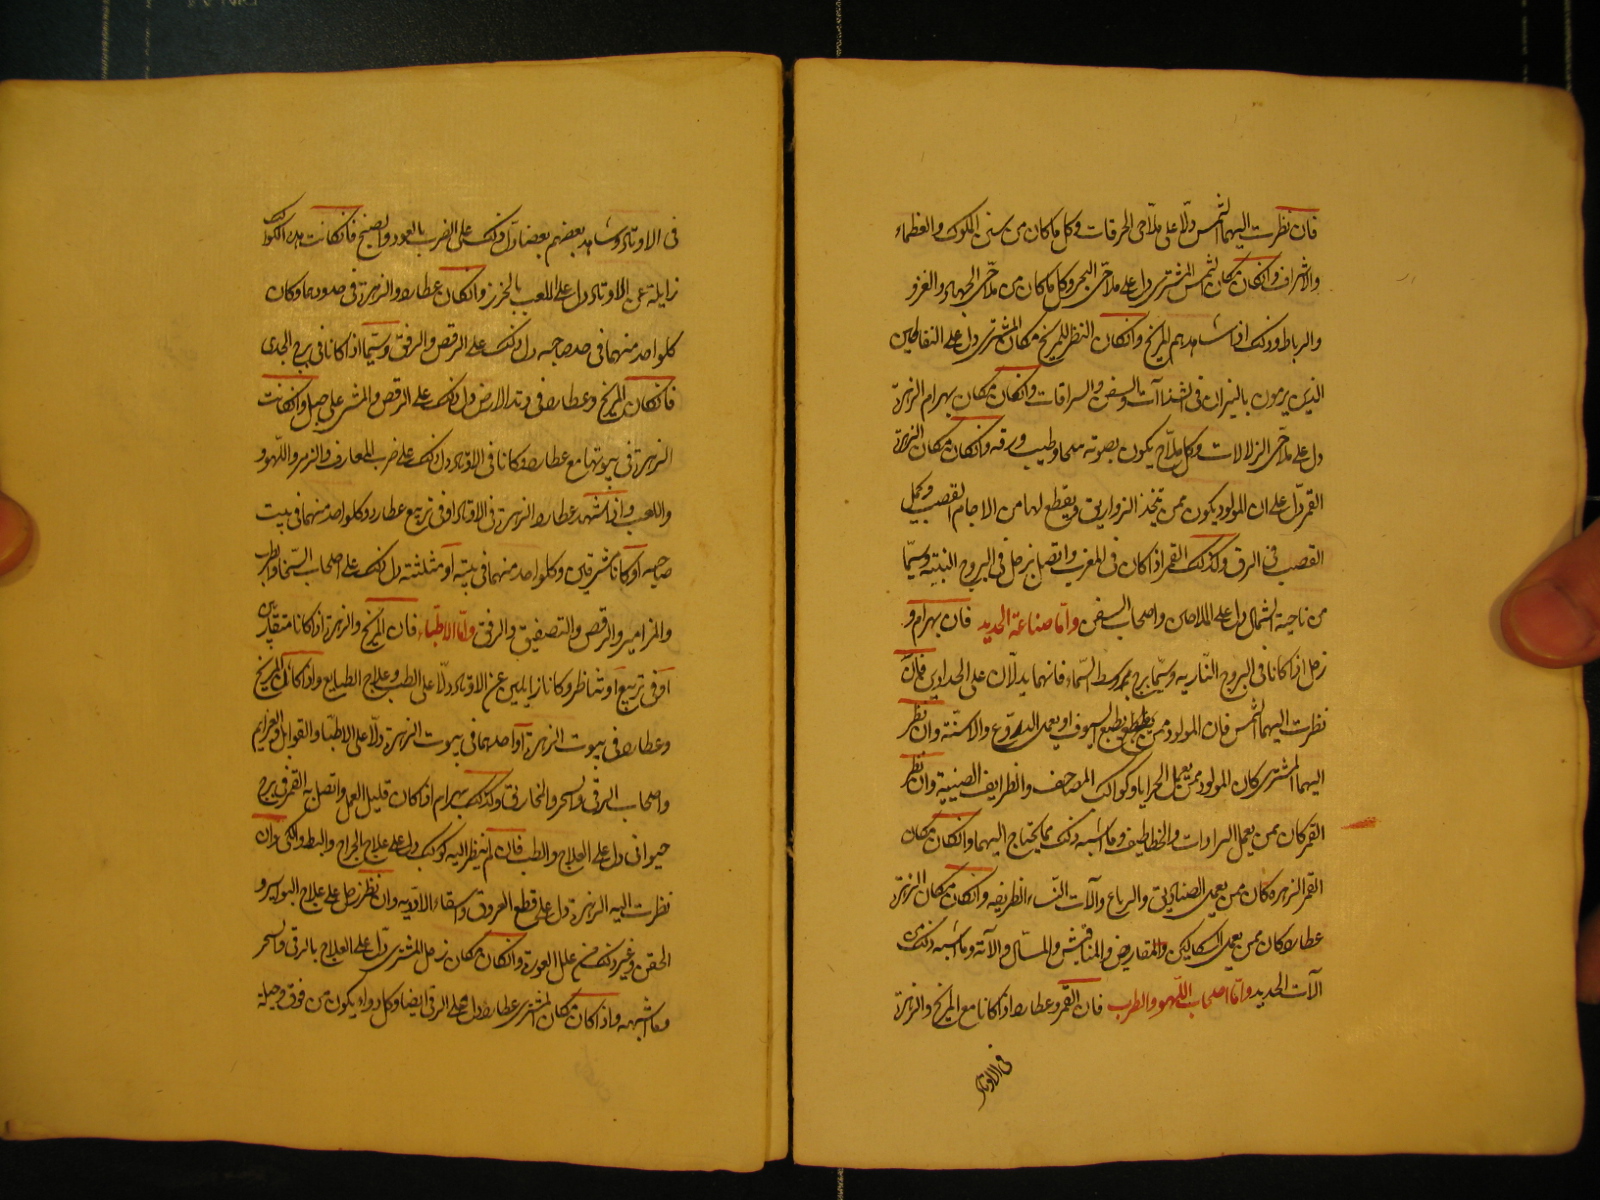 فان نظرت اليهما الشمس دلّا على ملّاحى الحرقات وكل ما كان من سفن الملوك والعظماء
والاشراف وانكان مكان الشمس المشترى دل على ملاحى البحر وكل ما كان من ملاحى الجهاد والغزو
والرباط وذلك اذا شاهدهم المريخ وانكان النظر للمريخ مكان المشترى دل على النفاطين
الذين يرمون بالنيران فى الشذاآت والسفن والسراقات وانكان مكان بهرام الزهرة
دل على ملاحى الزلالات وكل ملاح يكون بصوته ملحا وطيب ورقه وانكان مكان الزهرة
القمر دل على ان المولود يكون ممن يتخذ الزواريق ويقطع لها من الاجام القصب ويحمل
القصب فى الرق وكذلك القمر اذا كان فى المغرب واتصل بزحل فى البروج البيتيه وسيّما
من ناحية الشمال دل على الملاحين واصحاب السفن واما صناعة الحديد فان بهرام و
زحل اذا كانا فى البروج الناريه وسيّما برج وسط السماء فانهما يدلّان على الحدادين فان
نظرت اليهما الشمس فان المولود ممن يطبع السيوف او يعمل الدروع والاسنّة وان نظر
اليهما المشترى كان المولود ممن يعمل المرايا وكواكب المصاحف والطرايف الصينية وان نظر
القمر كان ممن يعمل المرادات والخطاطيف وما اشبه ذلك مما يحتاج اليهما وانكان مكان
القمر الزهره كان ممن يعمل الصناديق والرباع وآلات النساء الظريفه وانكان مكان الزهرة
عطارد كان ممن يعمل السكاكين والمقاريض والمناقيش والمسال والآلة وما اشبه ذلك من
آلات الحديد واما اصحاب اللهو والطرب فان القمر وعطارد اذا كانا مع المريخ والزهرة
فى الاوتاد
فى الاوتاد وشاهد بعضهم بعضا دل ذلك على الضرب بالعود والصنج فانكانت هذه الكواكب
زايلة عن الاوتاد دل على اللعب بالخرز وانكان عطارد والزهرة فى حدودهما وكان
كلواحد منهما فى حد صاحبه دل ذلك على الرقص والرفق وسيّما اذا كانا فى برج الجدى
فانكان المريخ وعطارد فى وتد الارض دل ذلك على الرقص والمشى على حبل وانكانت
الزهرة فى بيوتها مع عطارد وكانا فى الاوتاد دل ذلك على ضرب المعازف والزمر واللهو و
واللعب واذا شهد عطارد الزهرة فى الاوتاد او فى تربيع عطارد وكلواحد منهما فى بيت
صاحبه او كانا مشرقين وكلواحد منهما فى بيته او مثلثته دل ذلك على اصحاب السخا والطرب
والمزامير والرقص والتصفيق والرفق واما الاطباء فان المريخ والزهرة اذا كانا متقابلين
او فى تربيع او تناظر وكانا زايلين عن الاوتاد دلّا على الطب وعلاج الطبايع واذا كان المريخ
وعطارد فى بيوت الزهرة او احدهما فى بيوت الزهرة دلّا على الاطبّاء والقوابل والعزايم
واصحاب الرقى والسحر والمخاريق وكذلك بهرام اذا كان قليل العمل واتصل به القمر فى برج
حيوانى دل على العلاج والطب فان لم ينظر اليه كوكب دل على علاج الجراح والبط والكى وان
نظرت اليه الزهرة دل على قطع العروق وسقاء الادويه وان نظر زحل على علاج البواسير و
الحقن وغير ذلك من علل العورة وانكان مكان زحل المشترى دل على العلاج بالرقى والسحر
وما اشبهه واذا كان مكان المشترى عطارد دل على الرقى ايضا وكل دواء يكون من فوق وحيلة